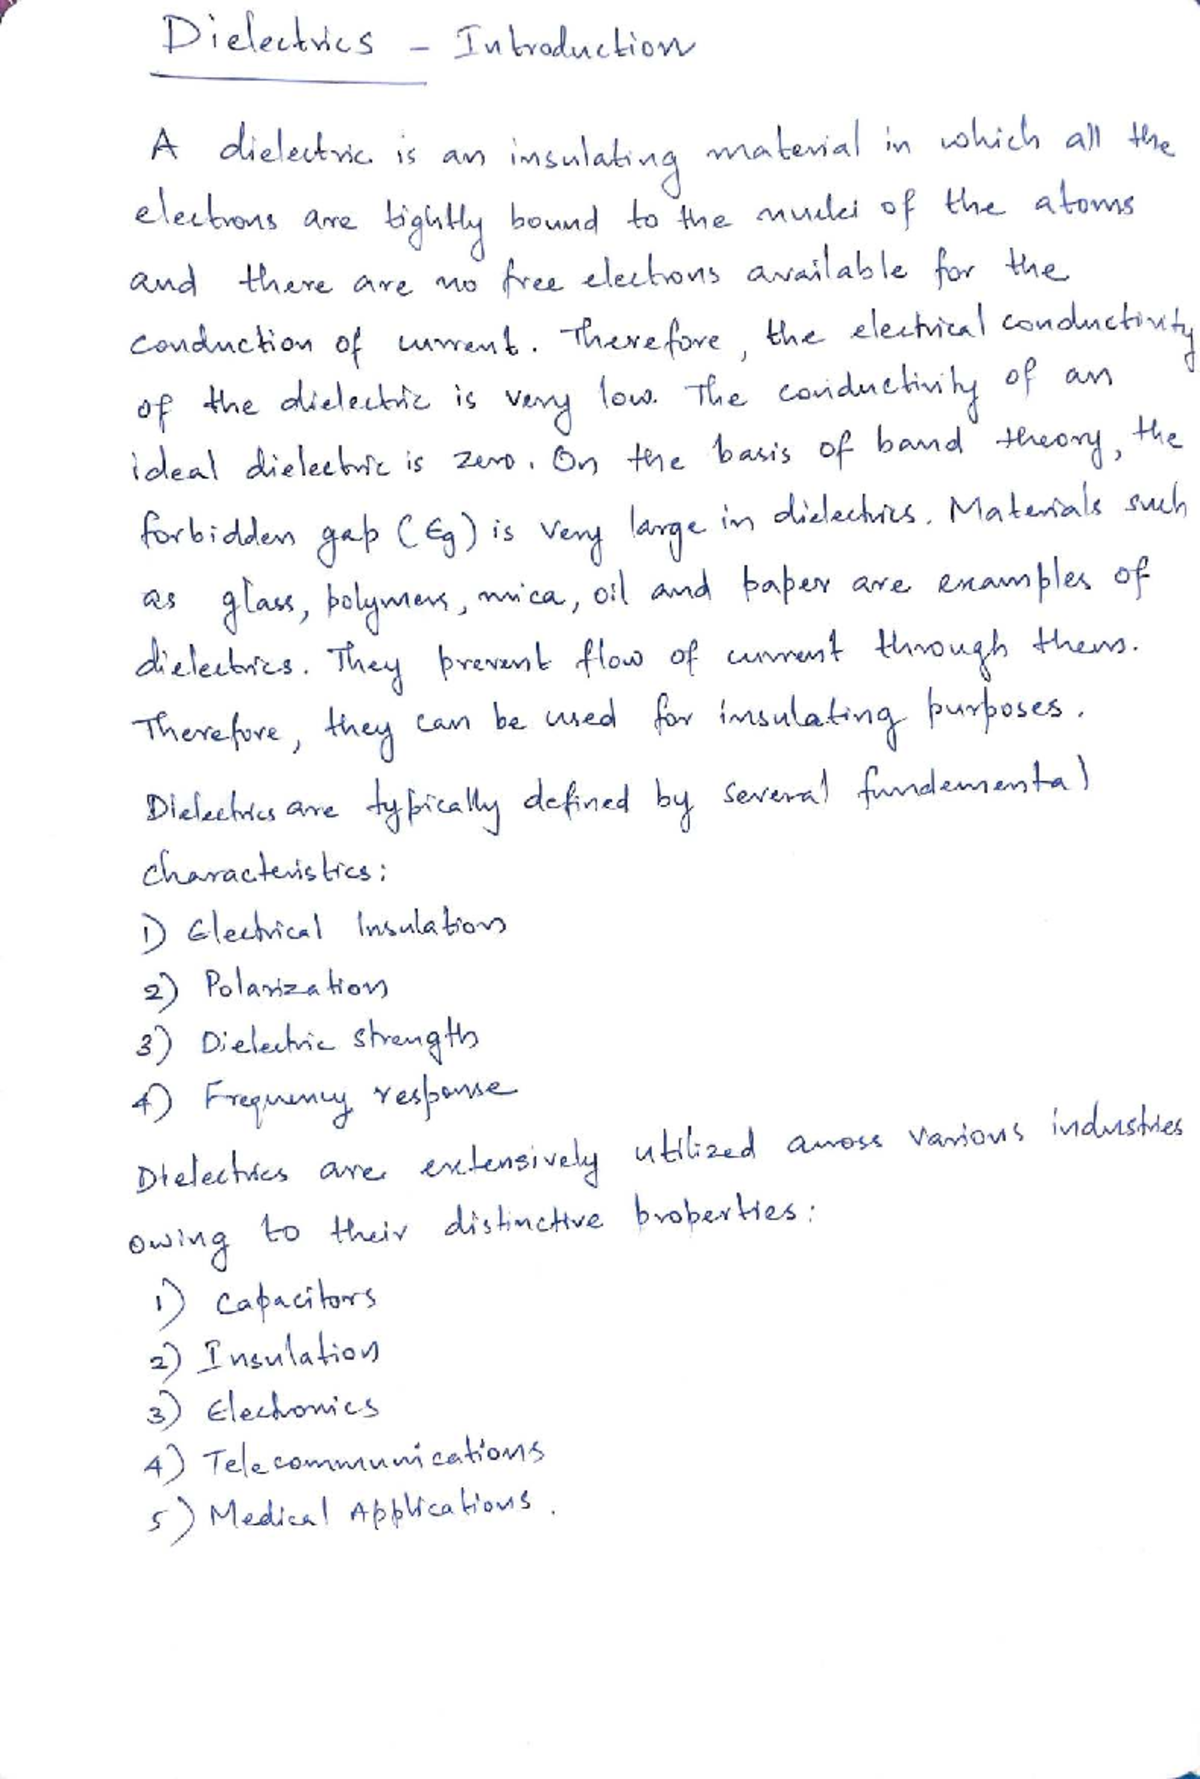 Dielectrics - Introduction
A dielectric is an insulating material in which all the
electrons are tightly bound to the nuclei of the atoms
and there are no free electrons available for the
conduction of current. Therefore, the electrical conductivity
of the dielectric is very low. The conductivity of an
ideal dielectric is zero. On the basis of band theory, the
forbidden gap (Eg) is very large in dielectrics. Materials such
as glass, polymers, mica, oil and paper are examples of
dielectrics. They prevent flow of current through them.
Therefore, they can be used for insulating purposes.
Dielectrics are typically defined by several fundemental
characteristics:
1) Electrical Insulation
2) Polarization
3) Dielectric strength
4) Frequency response
Dielectrics are extensively utilized across various industries
owing to their distinctive properties:
1) Capacitors
2) Insulation
3) Electronics
4) Telecommunications
5) Medical Applications.